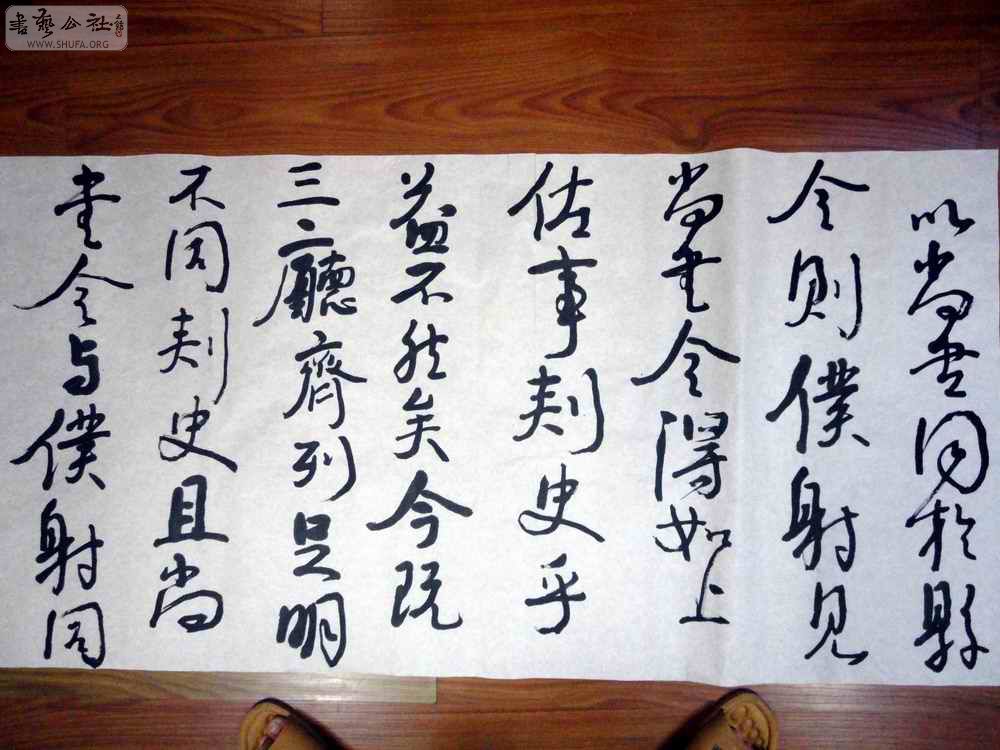 書藝公社
WWW.SHUFA.ORG
以尚书同於縣
令則僕射見
尚書令得如上
佐事刺史乎
益不然矣今既
三厅廳齊列足明
不同刺史且尚
書令与僕射同